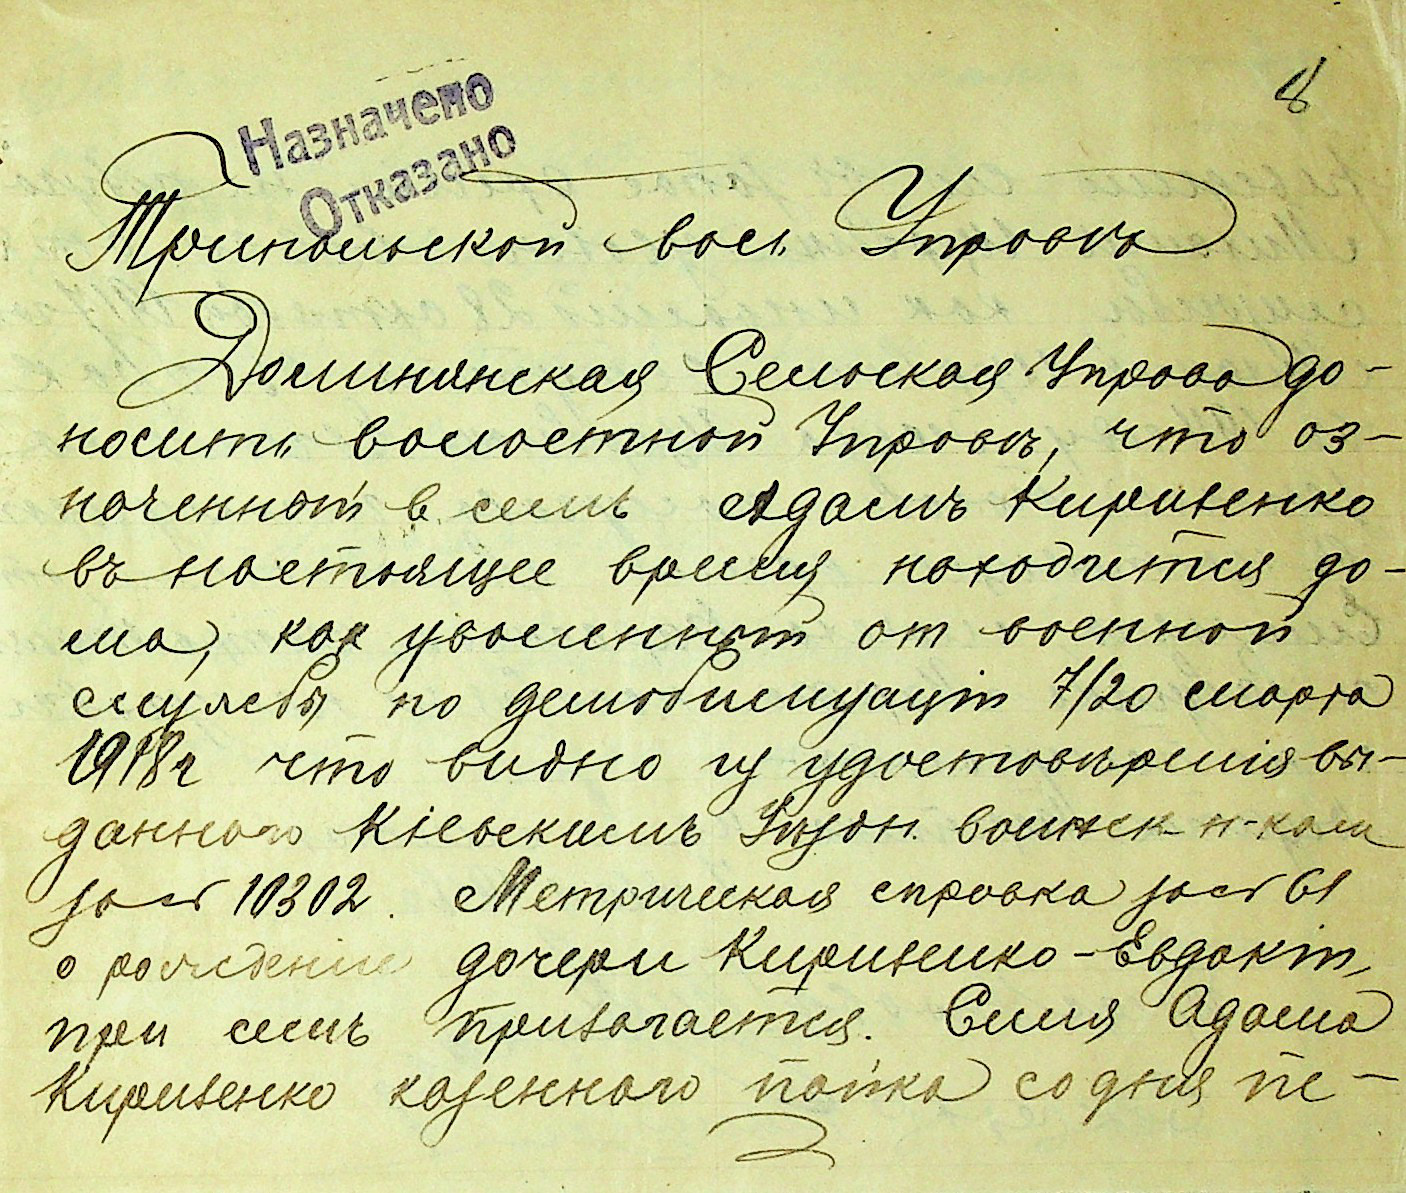 8
Назначено
Отказано
Трипольской вол. Управѣ
Долинянская Сельская Управа до-
носитъ волостной Управѣ, что оз-
наченный в семъ Адамъ Кириленко
въ настоящее время находится до-
ма, как уволенный от военной
службы по демобилизаціи 7/20 марта
1918 г что видно из удостовѣренія вы-
данного Кіевскимъ Уѣздн. воинск. н-ком
за № 10302. Метрическая справка за № 61
о рождении дочери Кириленко - Евдокіи,
при семъ прилагается. Семя Адама
Кириленко казенного пайка со дня пе-